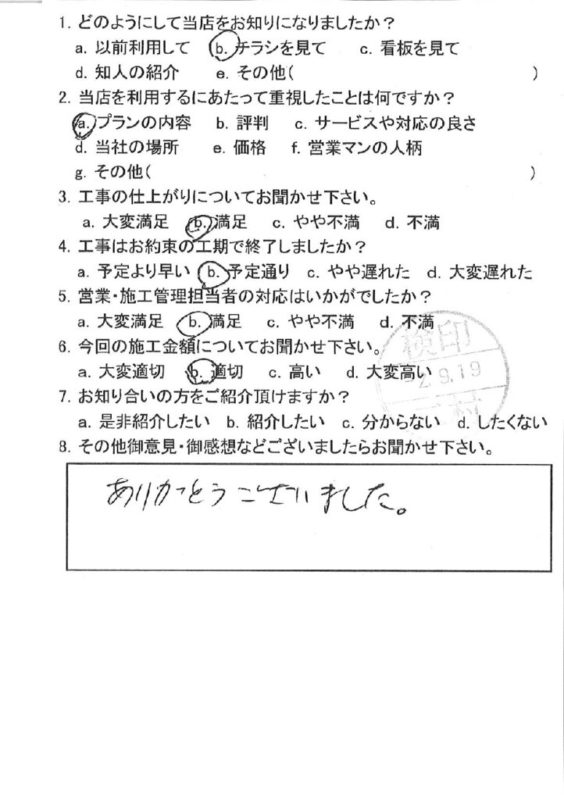 1. どのようにして当店をお知りになりましたか？
a. 以前利用して　b. チラシを見て　c. 看板を見て
d. 知人の紹介　e. その他(　　　　　)
2. 当店を利用するにあたって重視したことは何ですか？
a. プランの内容　b. 評判　c. サービスや対応の良さ
d. 当社の場所　e. 価格　f. 営業マンの人柄
g. その他(　　　　　)
3. 工事の仕上がりについてお聞かせ下さい。
a. 大変満足　b. 満足　c. やや不満　d. 不満
4. 工事はお約束の工期で終了しましたか？
a. 予定より早い　b. 予定通り　c. やや遅れた　d. 大変遅れた
5. 営業・施工管理担当者の対応はいかがでしたか？
a. 大変満足　b. 満足　c. やや不満　d. 不満
検印
6. 今回の施工金額についてお聞かせ下さい。
a. 大変適切　b. 適切　c. 高い　d. 大変高い
2.9.19
7. お知り合いの方をご紹介頂けますか？
a. 是非紹介したい　b. 紹介したい　c. 分からない　d. したくない
8. その他御意見・御感想などございましたらお聞かせ下さい。
ありがとうございました。